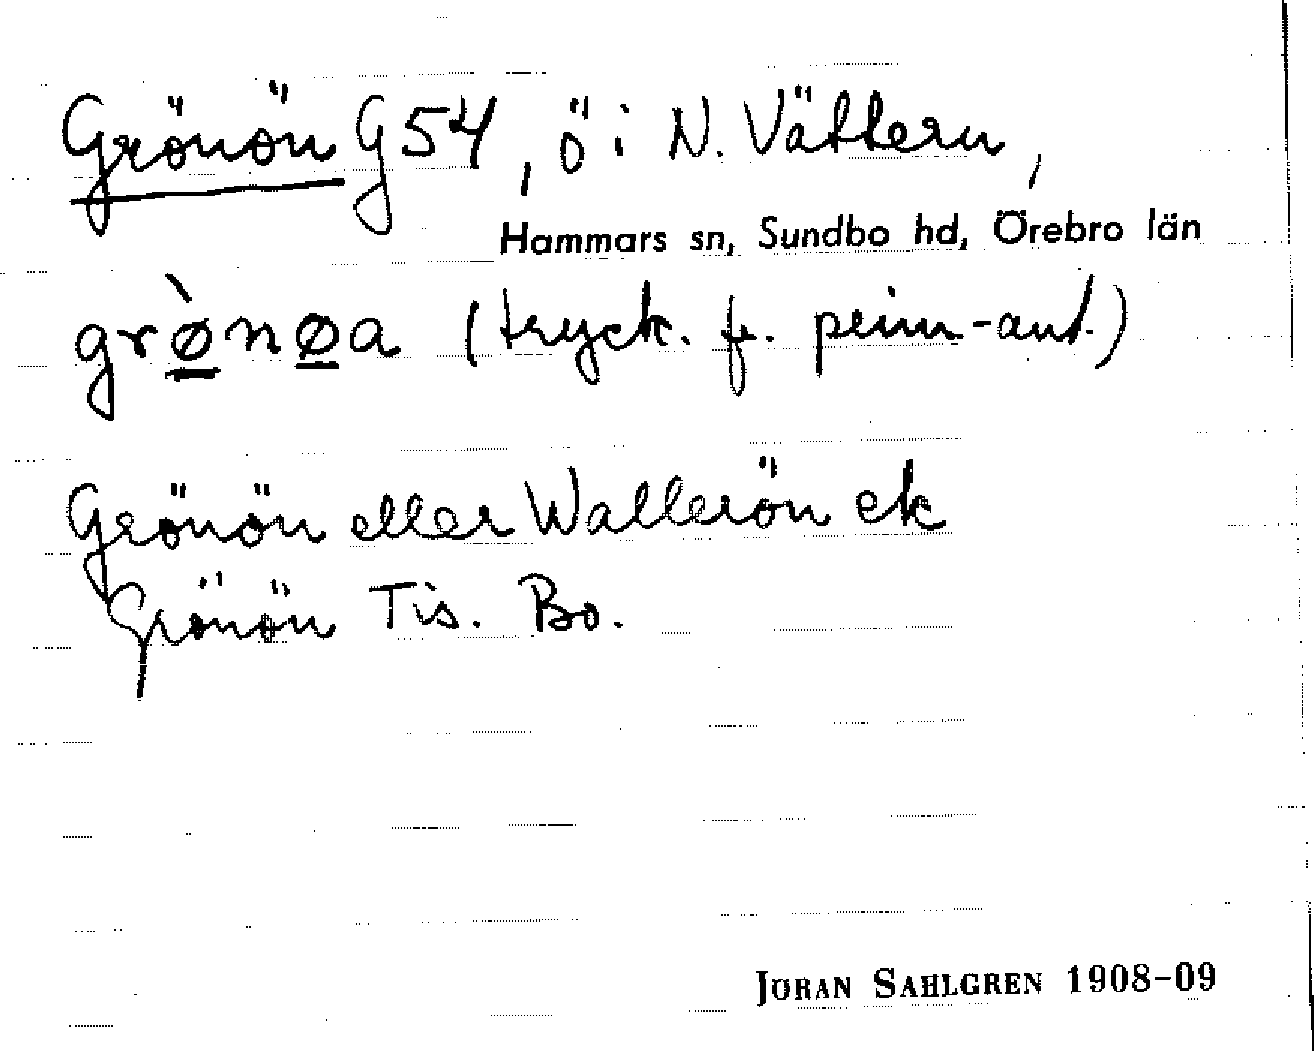 Grönön G54, ö i N. Vättern,
Hammars sn, Sundbo hd, Örebro län
grø̀nøa (tryck. f. prim-ant.)
Grönön eller Wallerön ek
Grönön Tis. Bo.
JÖRAN SAHLGREN 1908-09